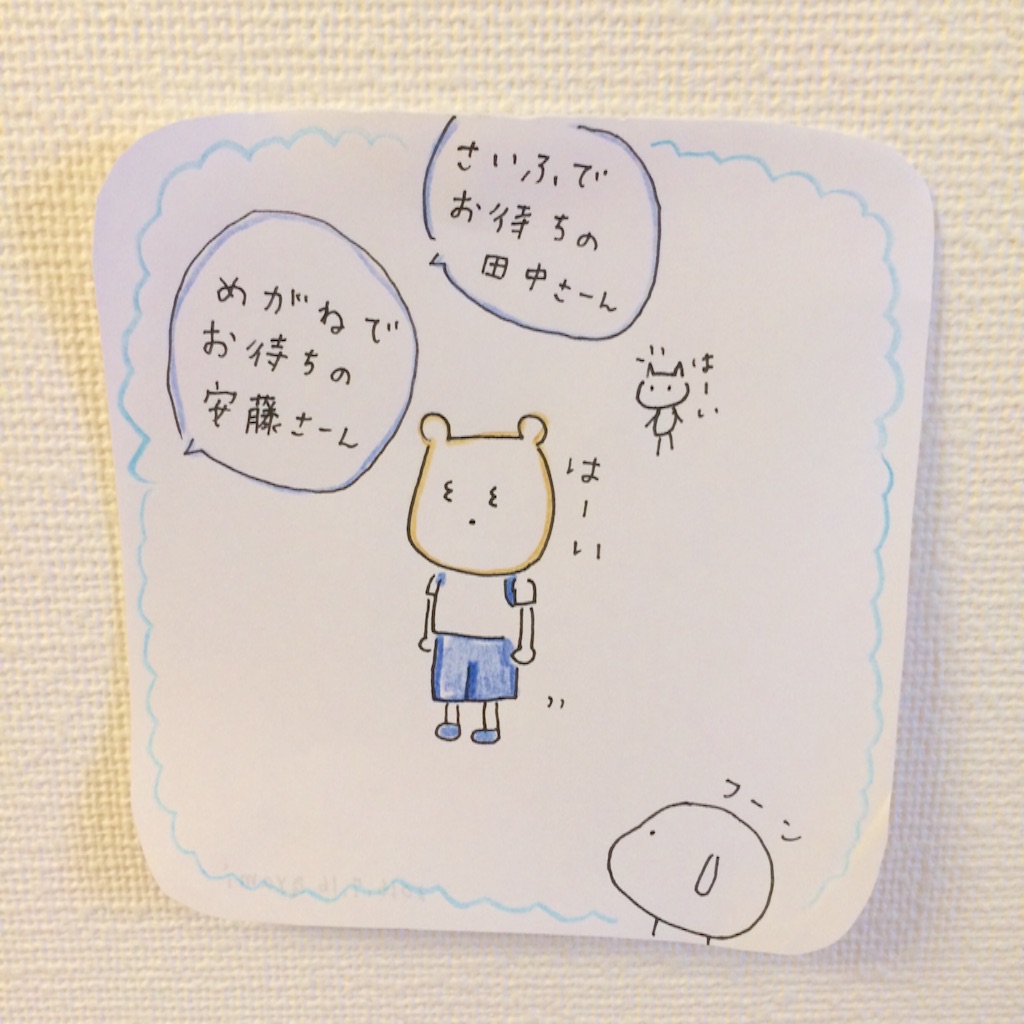 さいふで
お待ちの
田中さーん
めがねで
お待ちの
安藤さーん
はーい
はーい
フーン